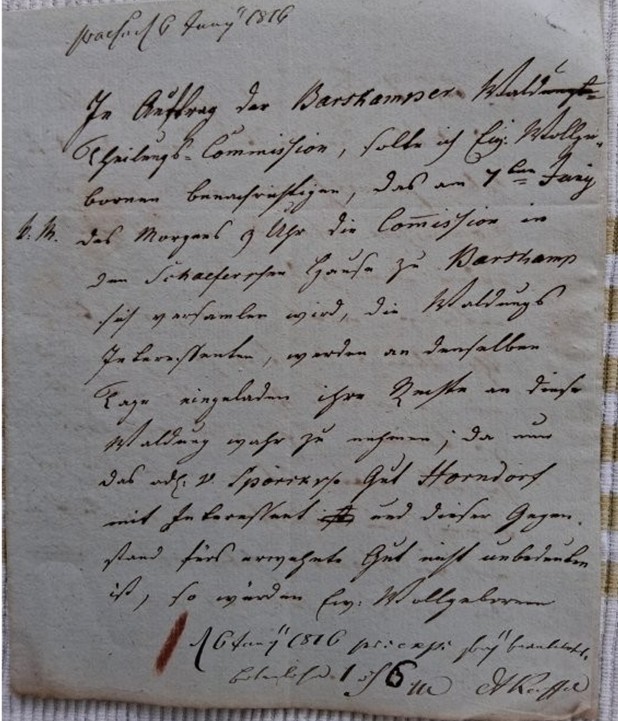 6 Juny 1816
In Auftrag der Barskamper Waldungs-
Theilungs-Commission, solte ich Ew. Wollge-
bornen benachrichtigen, das am 7ten Juny
d. M. des Morgens 9 Uhr die Commission in
den Schaeferschen Hause zu Barskamp
sich versamlen wird, die Waldungs
Interessenten, werden an denselben
Tage eingeladen ihre Rechte an diese
Waldung wahr zu nehmen; da nun
das adl. v. Spörcksche Gut Horndorf
mit Interessent ist und dieser Gegen-
stand fürs erwehnte Gut nicht unbedeutend
ist, so würden Ew: Wollgebornen
6 Juny 1816
6